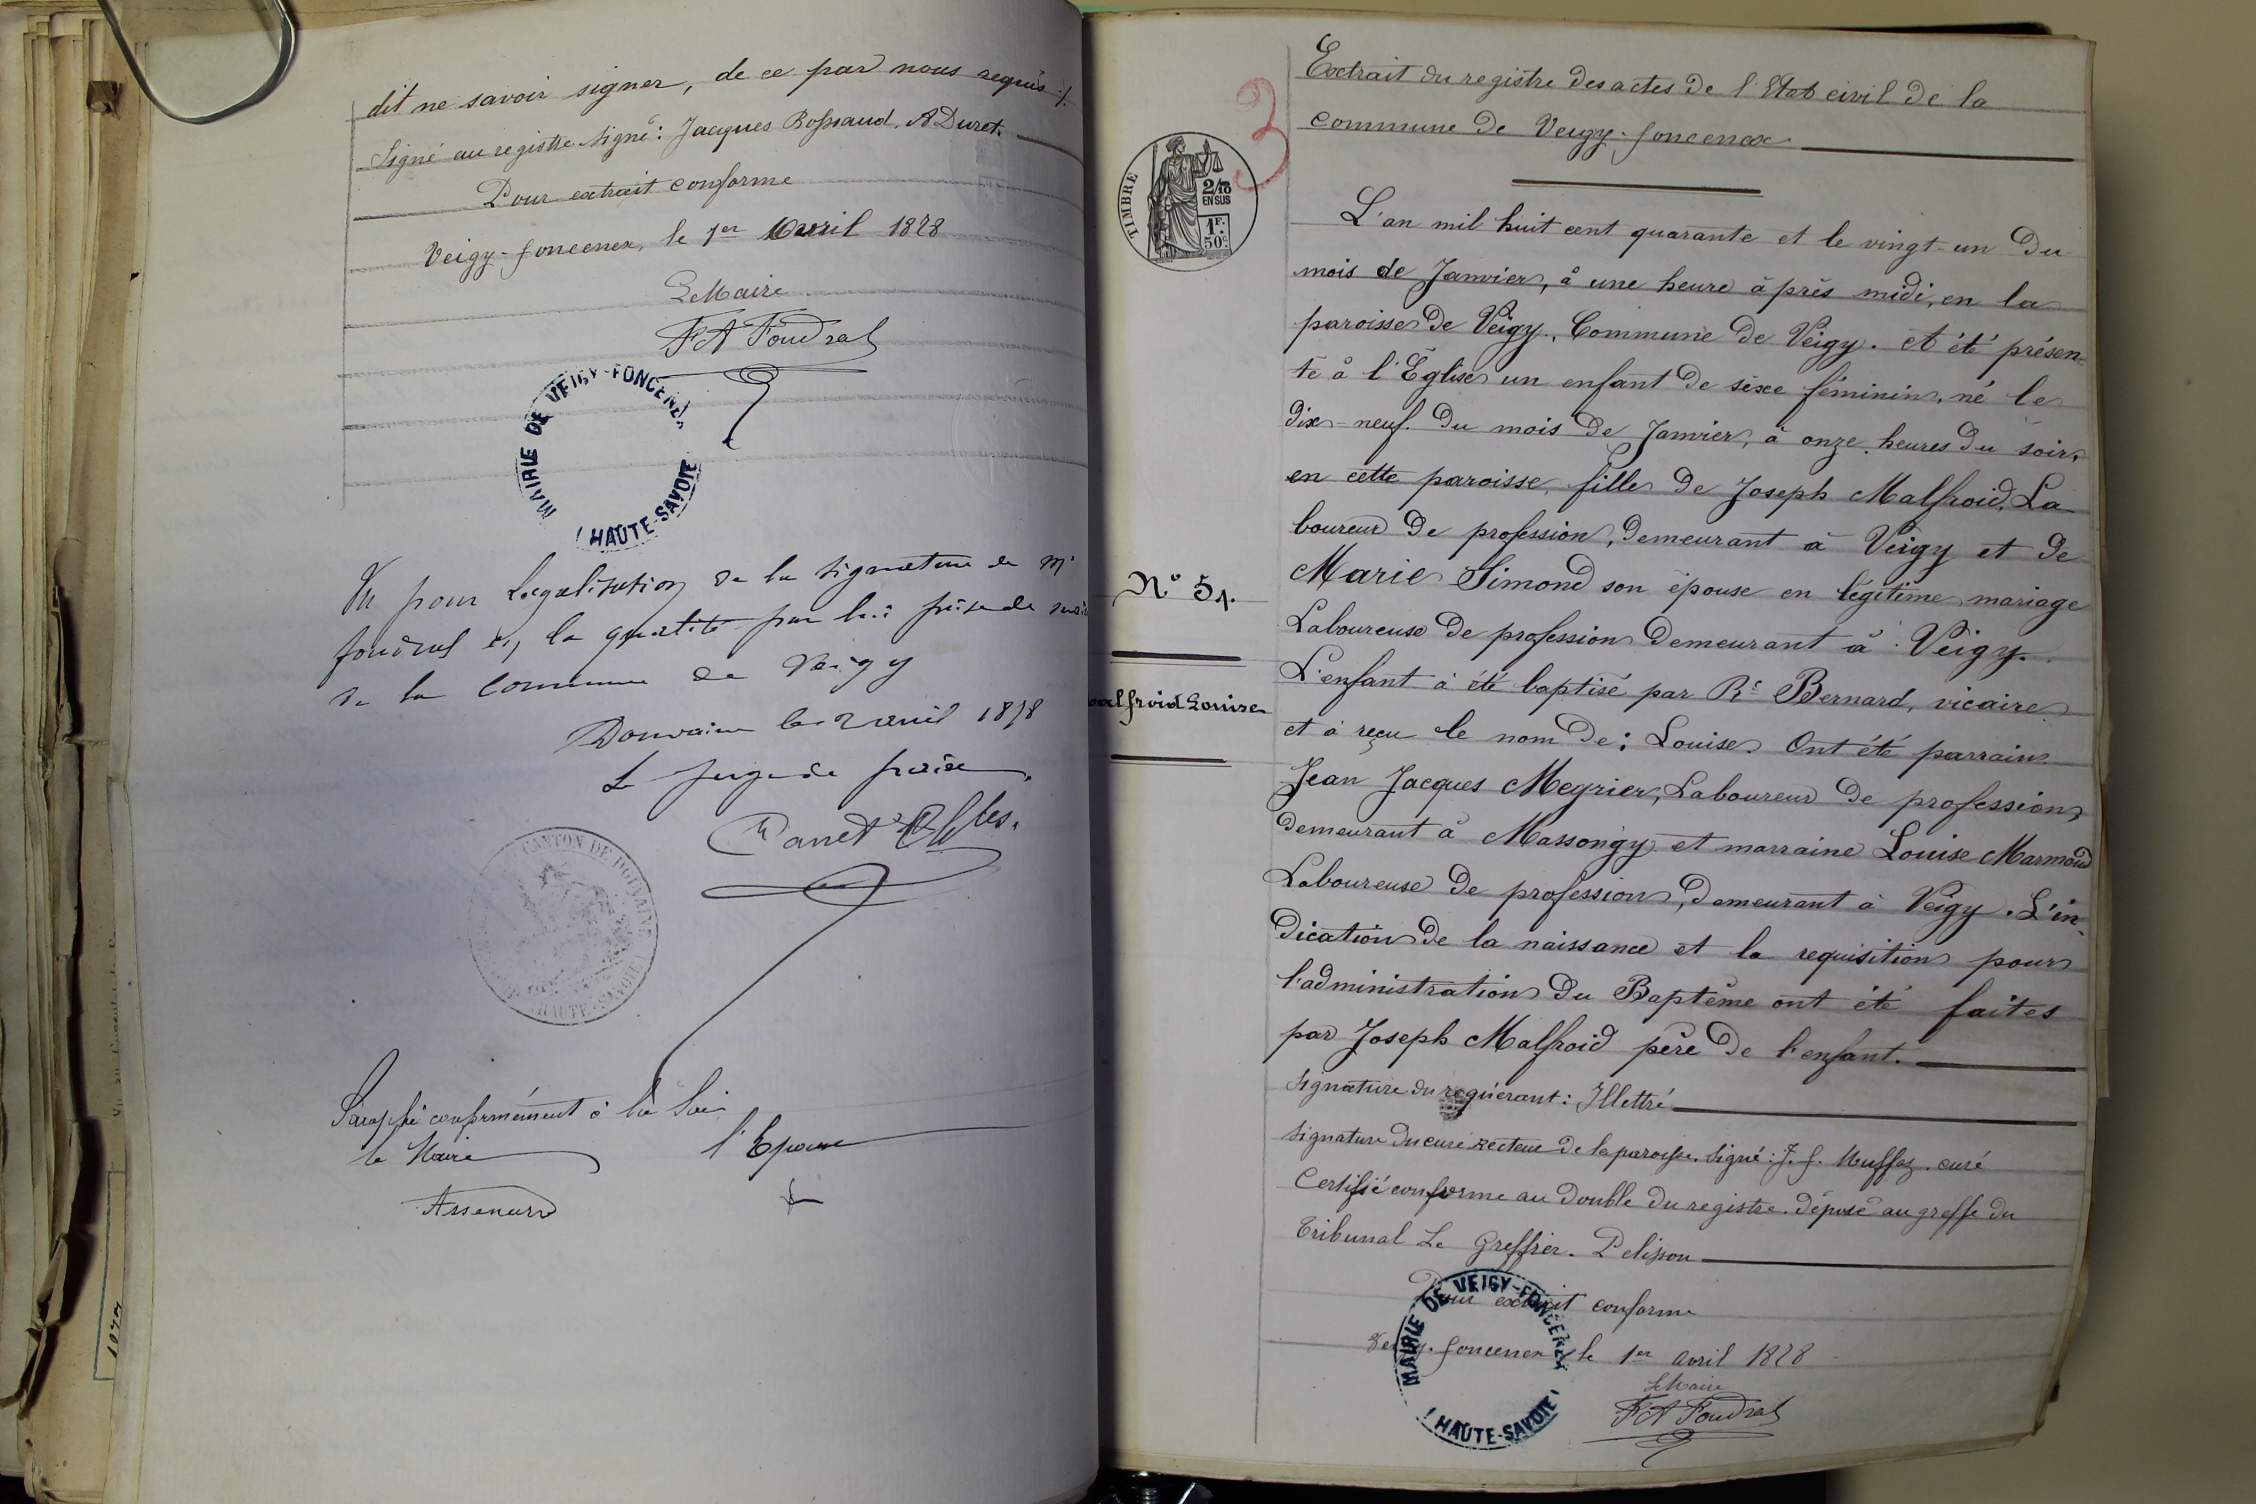 dit ne savoir signer, de ce par nous requis ./.
Signé au registre Signé: Jacques Bossaud, A Duret.
Pour extrait conforme
Veigy-foncenex, le 1er Avril 1878
Le Maire
FA Foudral
MAIRIE DE VEIGY-FONCENEX
HAUTE-SAVOIE
Vu pour Légalisation de la signature de Mr
foudral et, la qualité par lui prise de maire
de la Commune de Veigy
Douvaine le 2 avril 1878
Le Juge de paix.
CANTON DE DOUVAINE
(HAUTE-SAVOIE)
Paraphé conformément à la Loi
le Maire
l'Epouse
3
TIMBRE
2/10
EN SUS
1F.
50c.
Extrait du registre des actes de l'Etat civil de la
commune de Veigy-foncenex
L'an mil huit cent quarante et le vingt-un du
mois de Janvier, à une heure après midi, en la
paroisse de Veigy, Commune de Veigy. A été présen-
té à l'Eglise un enfant de sexe féminin, né le
dix-neuf du mois de Janvier, à onze heures du soir,
en cette paroisse, fille de Joseph Malfroid, La-
boureur de profession, demeurant à Veigy et de
Marie Simond son épouse en légitime mariage
N° 51.
Laboureuse de profession demeurant à Veigy.
L'enfant à été baptisé par Rd Bernard, vicaire
alfroid Louise
et à reçu le nom de: Louise. Ont été parrain
Jean Jacques Meyrier, Laboureur de profession,
demeurant à Massongy et marraine Louise Marmoud
Laboureuse de profession, demeurant à Veigy. L'in-
dication de la naissance et la requisition pour
l'administration du Baptême ont été faites
par Joseph Malfroid père de l'enfant.
Signature du requérant: Illettré
Signature du curé recteur de la paroisse. Signé: J. f. Muffaz. curé
Certifié conforme au double du registre déposé au greffe du
Tribunal Le Greffier. Pelisson
Pour extrait conforme
Veigy-foncenex le 1er avril 1878
Le Maire
FA Foudral
MAIRIE DE VEIGY-FONCENEX
HAUTE-SAVOIE